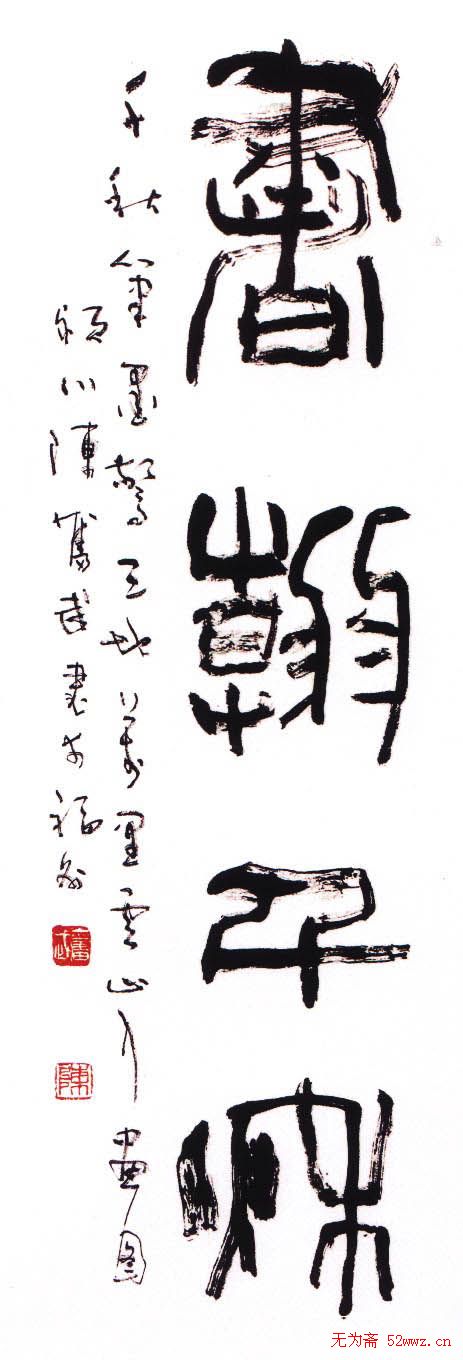 書翰千秋
千秋筆墨驚天地萬里雲山入畫圖
潁川陳奮武書於福州
奮武
陳
无为斋 52wwz.cn